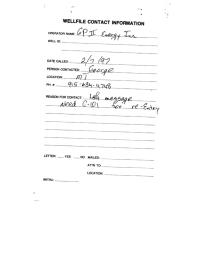 WELLFILE CONTACT INFORMATION
OPERATOR NAME: GP II Energy Inc
WELL ID:
DATE CALLED: 2/7/97
PERSON CONTACTED: George
LOCATION:
PH. #: 915-684-4748
REASON FOR CONTACT: Left message
Need C-101 for re-Entry
LETTER: YES NO MAILED:
ATTN TO:
LOCATION:
INITIAL: